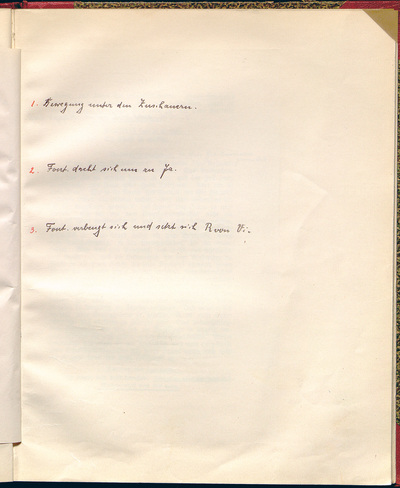 1. Bewegung unter den Zuschauern.
2. Font. dreht sich um zu Ja.
3. Font. verbeugt sich und setzt sich R von Vi.